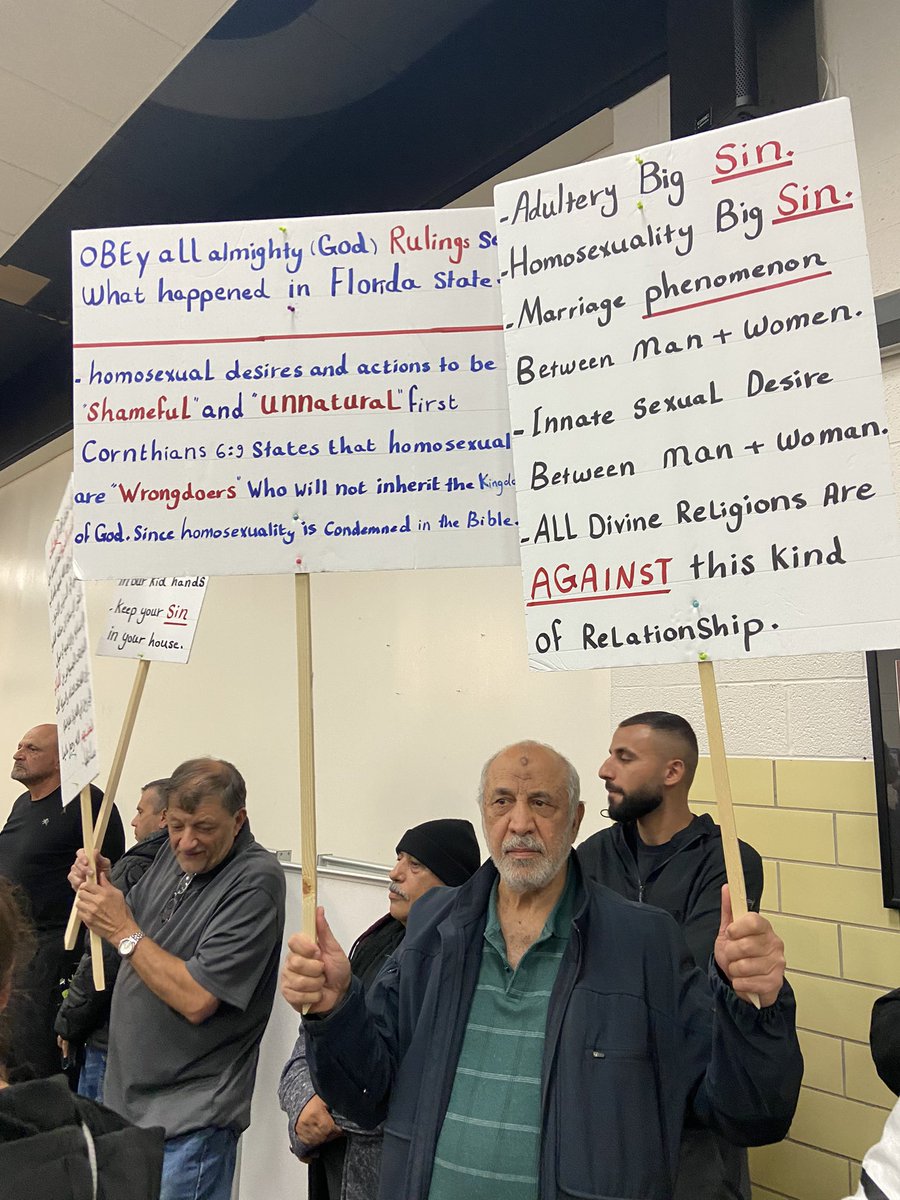 OBEy all almighty (God) Rulings Se
What happened in Florida State.
- homosexual desires and actions to be
"Shameful" and "unnatural" first
Cornthians 6:9 States that homosexual
are "Wrongdoers" Who will not inherit the Kingdo
of God. Since homosexuality is Condemned in the Bible.
- Adultery Big Sin.
- Homosexuality Big Sin.
- Marriage phenomenon
Between Man + Women.
- Innate Sexual Desire
Between Man + Woman.
- ALL Divine Religions Are
AGAINST this Kind
of RelationShip.
in our kid hands
- Keep your Sin
in your house.